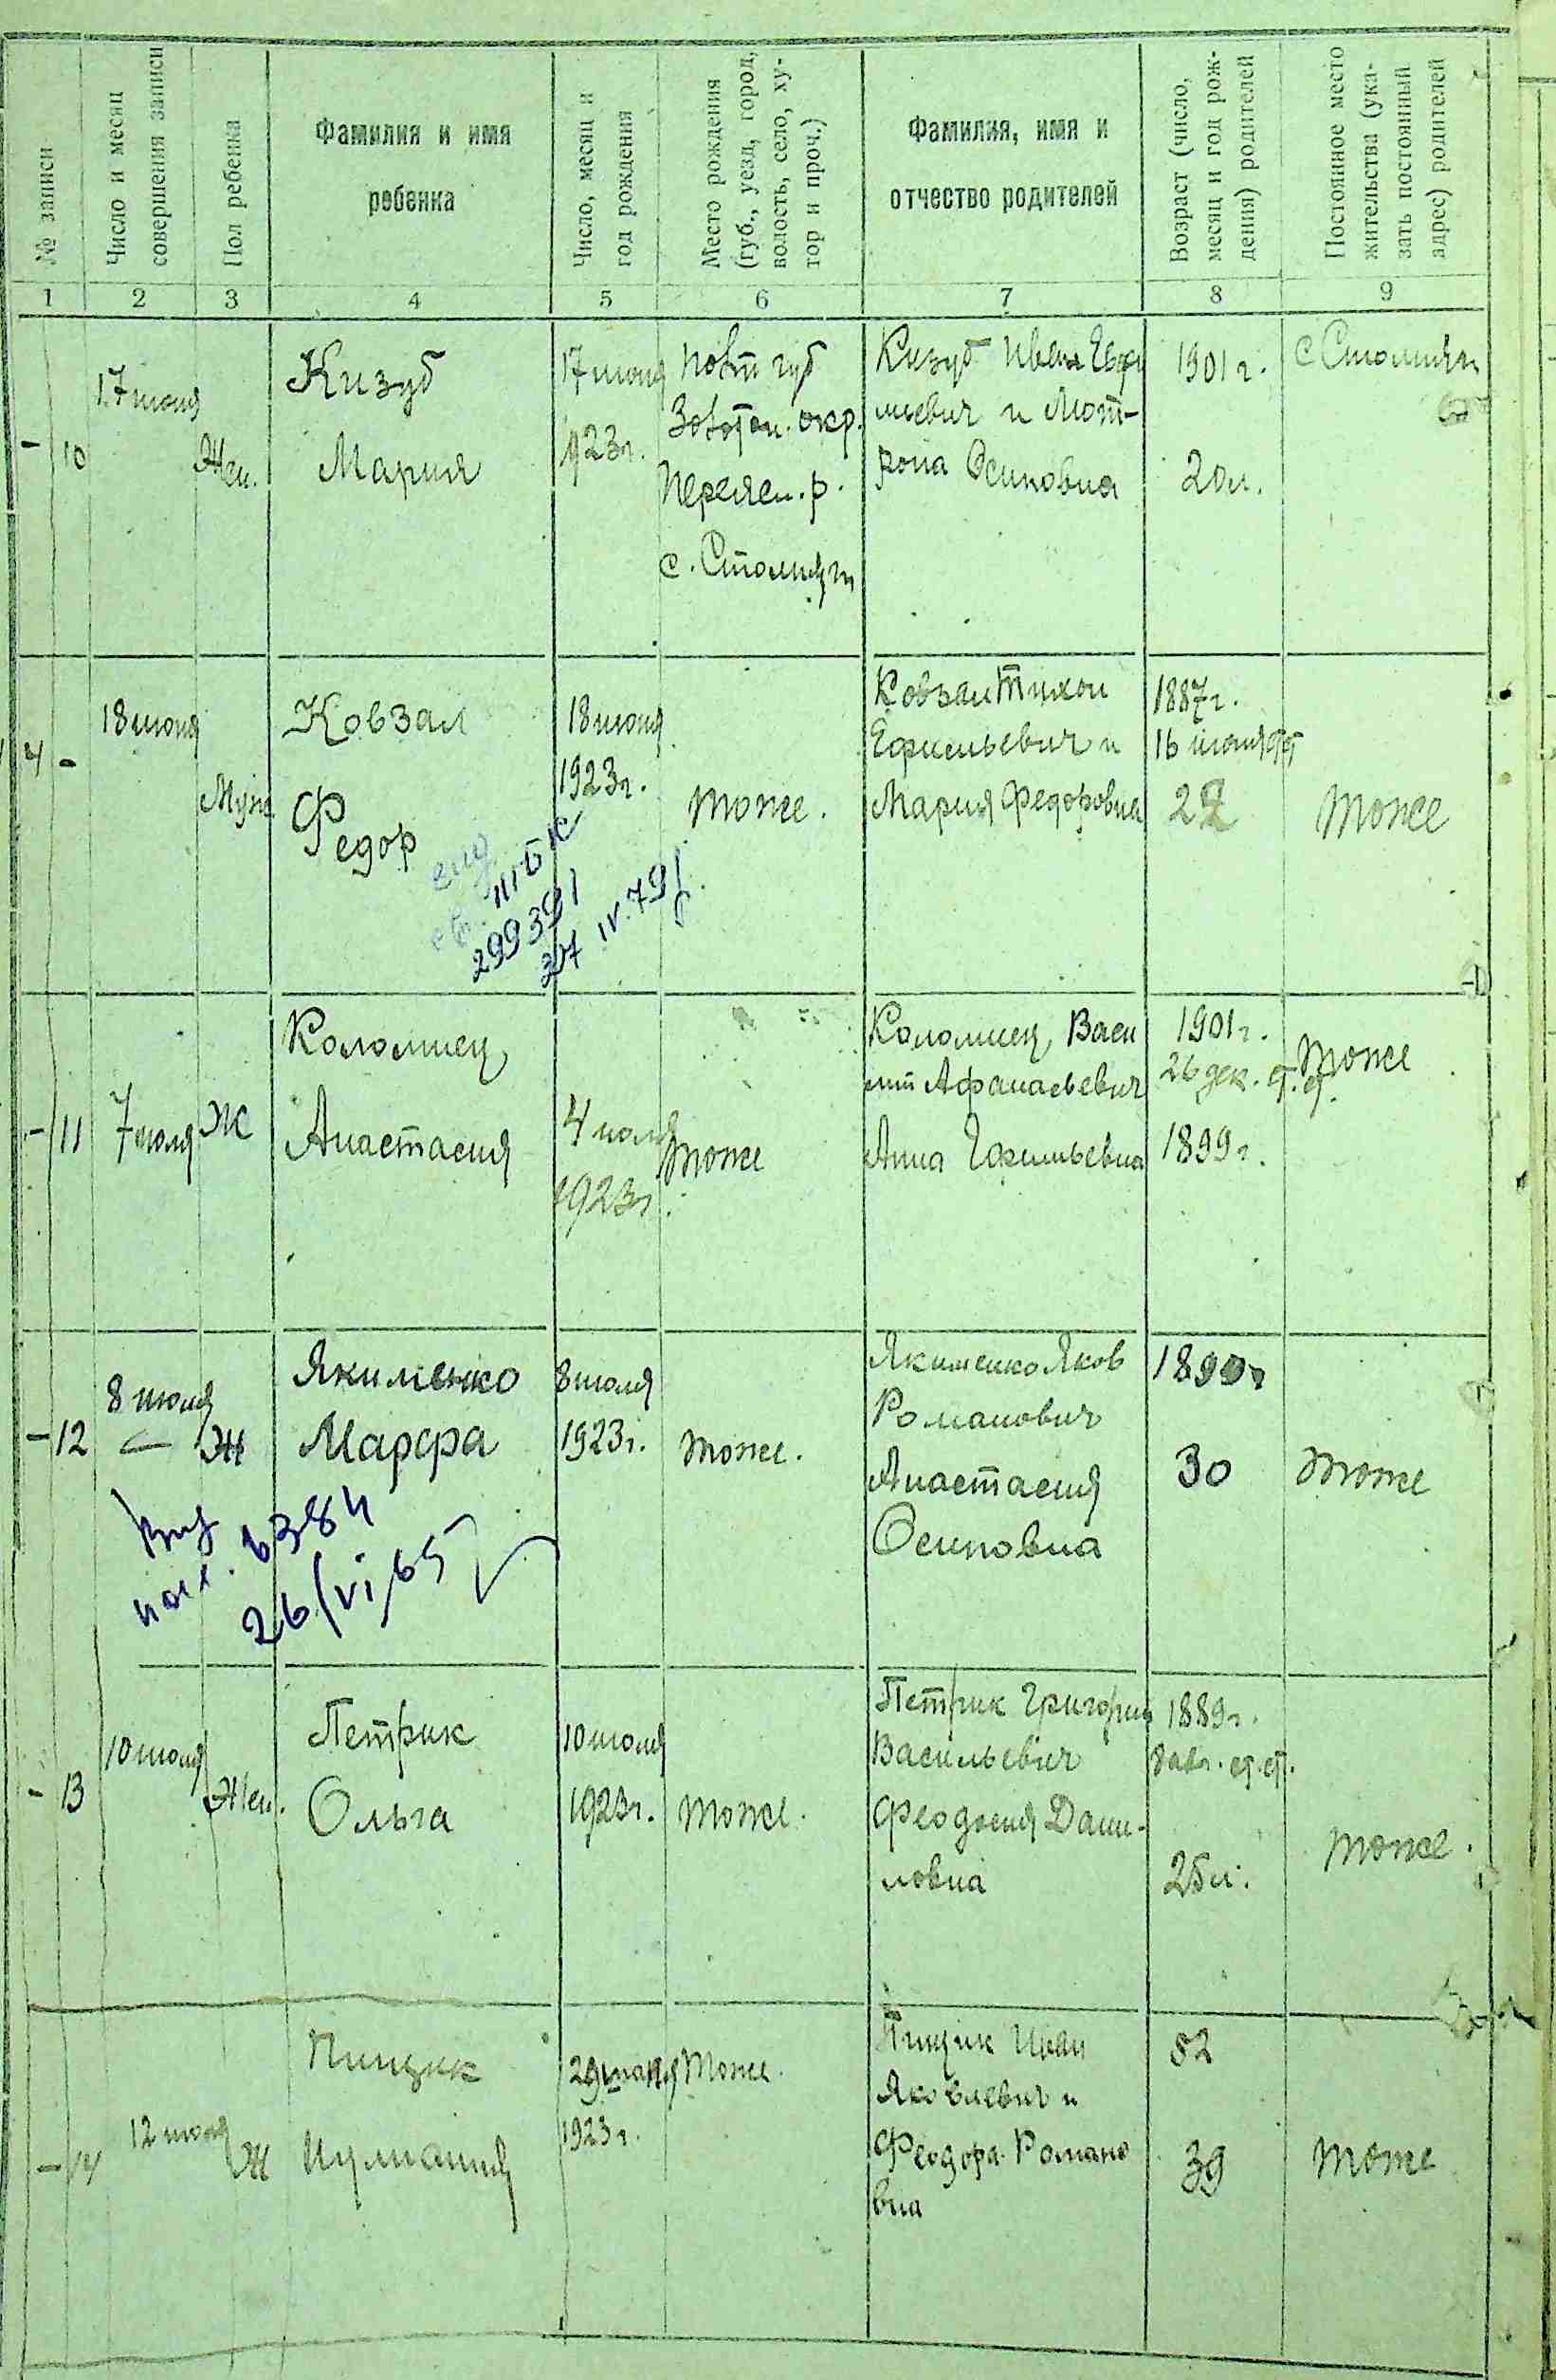 № записи
Число и месяц
совершения записи
Пол ребенка
Фамилия и имя
ребенка
Число, месяц и
год рождения
Место рождения
(губ., уезд, город,
волость, село, ху-
тор и проч.)
Фамилия, имя и
отчество родителей
Возраст (число,
месяц и год рож-
дения) родителей
Постоянное место
жительства (ука-
зать постоянный
адрес) родителей
1 2 3 4 5 6 7 8 9
10
17 июня
Жен.
Кизуб
Мария
17 июня
1923г.
Полт губ
Золотон. окр.
Переясл. р.
с. Столпяги
Кизуб Иван Ефи
мьевич и Мот-
рона Осиповна
1901 г.
20 л.
с Столпяги
4
18 июня
Муж
Ковзал
Федор
18 июня
1923г.
тоже.
Ковзал Тихон
Ефимьевич и
Мария Федоровна
1887г.
16 июня
22
тоже
299391
IV.79
11
7 июля
Ж
Коломиец
Анастасия
4 июля
1923г.
тоже
Коломиец Васи
лий Афанасьевич
Анна Ефимьевна
1901г.
26 дек. ст. ст.
1899г.
тоже
12
8 июля
Ж
Якименко
Марфа
8 июля
1923г.
тоже.
Якименко Яков
Романович
Анастасия
Осиповна
30
тоже
6384
26/VI 65
13
10 июля
Жен.
Петрик
Ольга
10 июля
1923г.
тоже.
Петрик Григорий
Васильевич
Феодосия Дани-
ловна
1889г.
8 авг. ст. ст.
25 л.
тоже.
14
12 июля
Ж
Пищик
Иулиания
1923г.
тоже.
Пищик Иван
Яковлевич и
Феодора Романо
вна
52
39
тоже